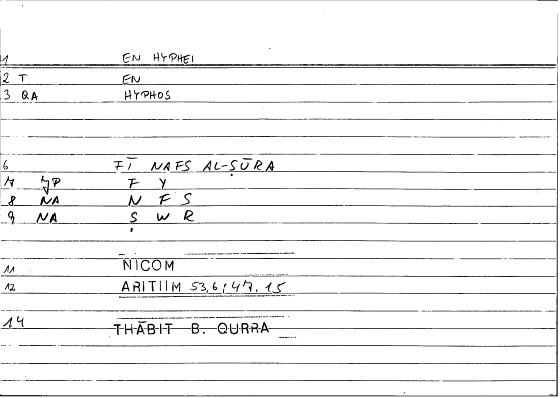 1 EN HYPHEI
2 T EN
3 QA HYPHOS
6 FĪ NAFS AL-ṢŪRA
7 YP F Y
8 NA N F S
9 NA Ṣ W R
11 NICOM
12 ARITIIM 53,6; 47,15
14 THĀBIT B. QURRA